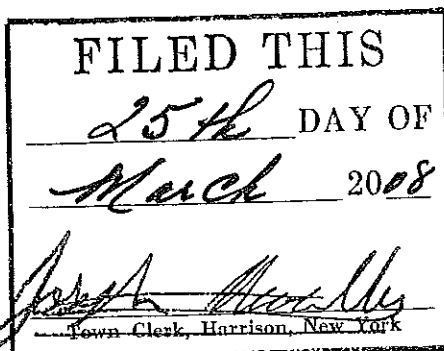 FILED THIS
25th DAY OF
March 2008
Joseph
Town Clerk, Harrison, New York